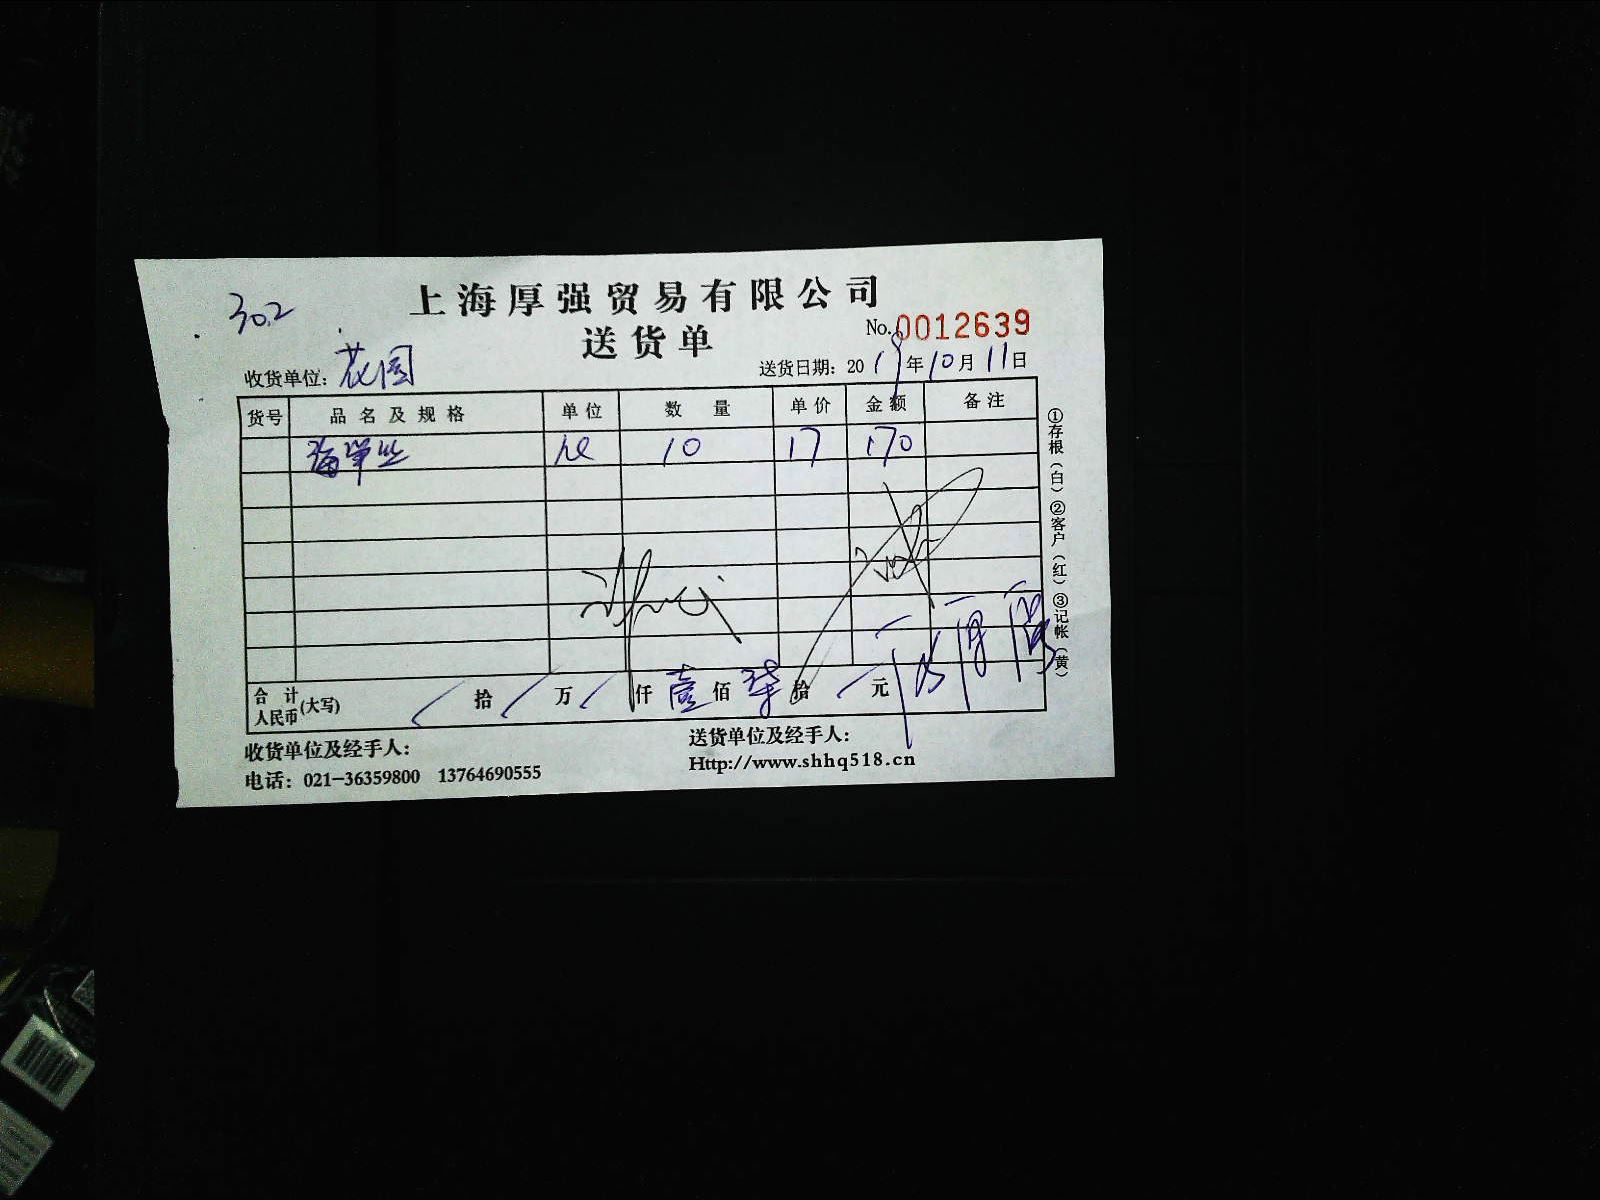 302
上海厚强贸易有限公司
送货单
No.0012639
收货单位：花园
送货日期：2019年10月11日
货号 品名及规格 单位 数量 单价 金额 备注
10 17 170
①存根（白）②客户（红）③记帐（黄）
合计人民币(大写) / 拾 / 万 / 仟 壹 佰 柒 拾 / 元
收货单位及经手人：
送货单位及经手人：
电话：021-36359800 13764690555
Http://www.shhq518.cn